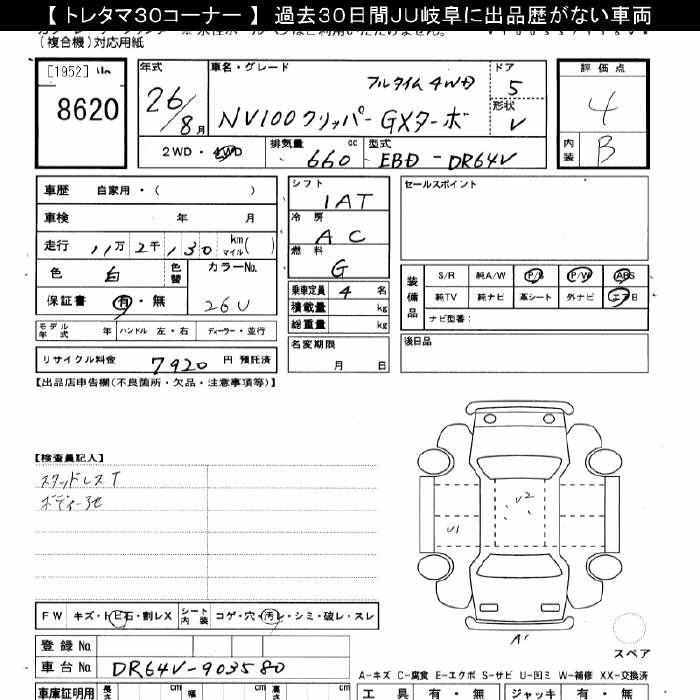 【 トレタマ30コーナー 】 過去30日間JU岐阜に出品歴がない車両
(複合機)対応用紙
[1952]
8620
年式
26/8月
車名・グレード
フルタイム4WD
NV100クリッパーGXターボ
ドア
5
形状
V
評価点
4
内装
B
2WD・4WD
排気量
660
cc
型式
EBD-DR64V
車歴 自家用・( )
車検 年 月
走行 11万2千130 km マイル( )
色 白 色替
カラーNo.
26U
保証書 有・無
モデル年式 年 ハンドル 左・右 ディーラー・並行
リサイクル料金 7920 円 預託済
シフト
IAT
冷房
AC
燃料
G
乗車定員 4 名
積載量 kg
総重量 kg
名変期限
月 日
セールスポイント
装備品
S/R 純A/W P/S P/W ABS
純TV 純ナビ 革シート 外ナビ エアB
ナビ型番:
後日品
【出品店申告欄(不良箇所・欠品・注意事項等)】
【検査員記入】
スタッドレスT
ボディー
U2
U1
A'
スペア
FW キズ・トビ石・割レX シート内装 コゲ・穴・汚レ・シミ・破レ・スレ
登録No.
車台No. DR64V-903580
A-キズ C-腐食 E-エクボ S-サビ U-凹ミ W-補修 XX-交換済
車庫証明用 長さ cm 幅 cm 高さ cm
工具 有・無 ジャッキ 有・無